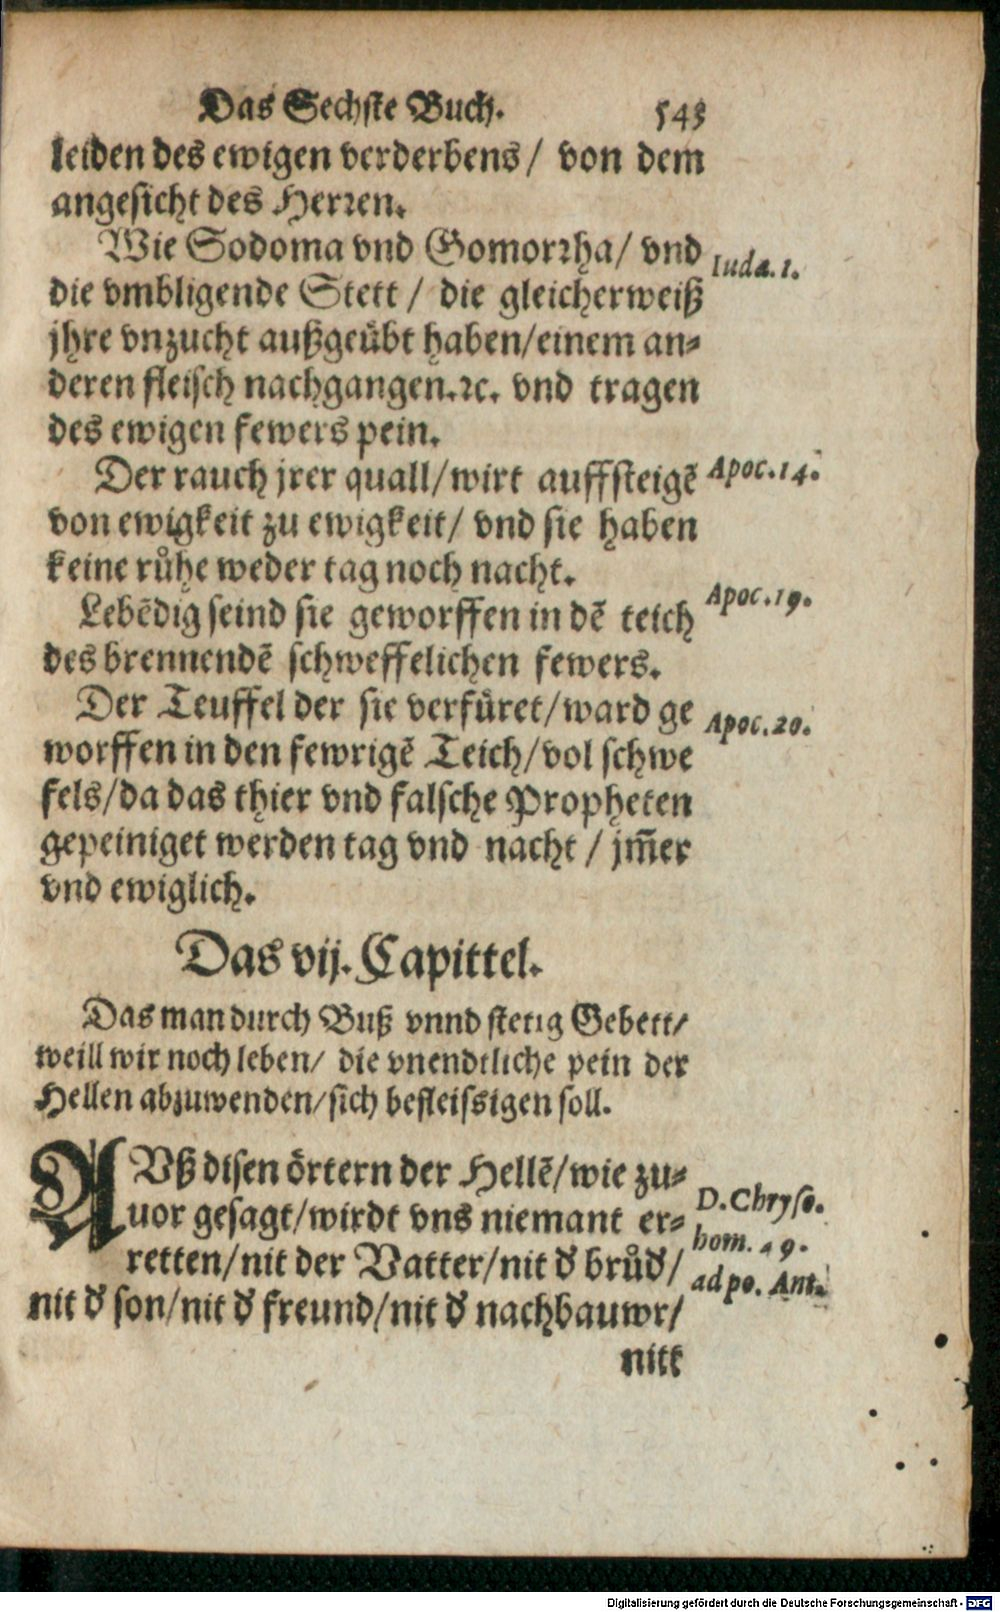 Das Sechste Buch. 543
leiden des ewigen verderbens / von dem
angesicht des Herren.
Wie Sodoma vnd Gomorrha / vnd
Iudæ. 1.
die vmbligende Stett / die gleicherweiß
jhre vnzucht außgeübt haben / einem an-
deren fleisch nachgangen. ꝛc. vnd tragen
des ewigen fewers pein.
Der rauch jrer quall / wirt auffsteigē
Apoc. 14.
von ewigkeit zu ewigkeit / vnd sie haben
keine růhe weder tag noch nacht.
Lebēdig seind sie geworffen in dē teich
Apoc. 19.
des brennendē schweffelichen fewers.
Der Teuffel der sie verfüret / ward ge
Apoc. 20.
worffen in den fewrigē Teich / vol schwe
fels / da das thier vnd falsche Propheten
gepeiniget werden tag vnd nacht / jm̄er
vnd ewiglich.
Das vij. Capittel.
Das man durch Buß vnnd stetig Gebett /
weill wir noch leben / die vnendtliche pein der
Hellen abzuwenden / sich befleissigen soll.
AVß disen örtern der Hellē / wie zu-
uor gesagt / wirdt vns niemant er-
retten / nit der Vatter / nit d' brůd' /
nit d' son / nit d' freund / nit d' nachbauwr /
D. Chryso.
hom. 49.
ad po. Ant.
nitt
Digitalisierung gefördert durch die Deutsche Forschungsgemeinschaft - DFG